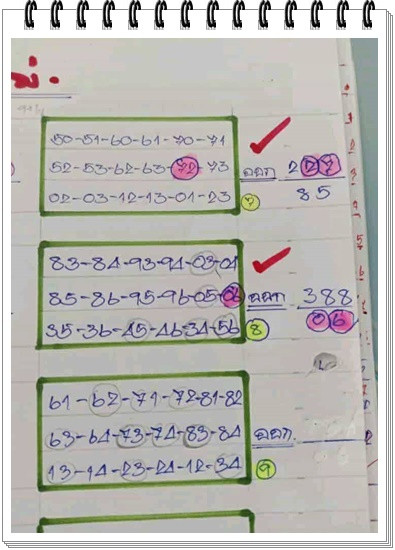 50-51-60-61-70-71
52-53-62-63-72-73
ออก 227
02-03-12-13-01-23
7
85
83-84-93-94-03-04
85-86-95-96-05-06
ออก 388
35-36-45-46-34-56
8
06
61-62-71-72-81-82
63-64-73-74-83-84
ออก
13-14-23-24-12-34
9